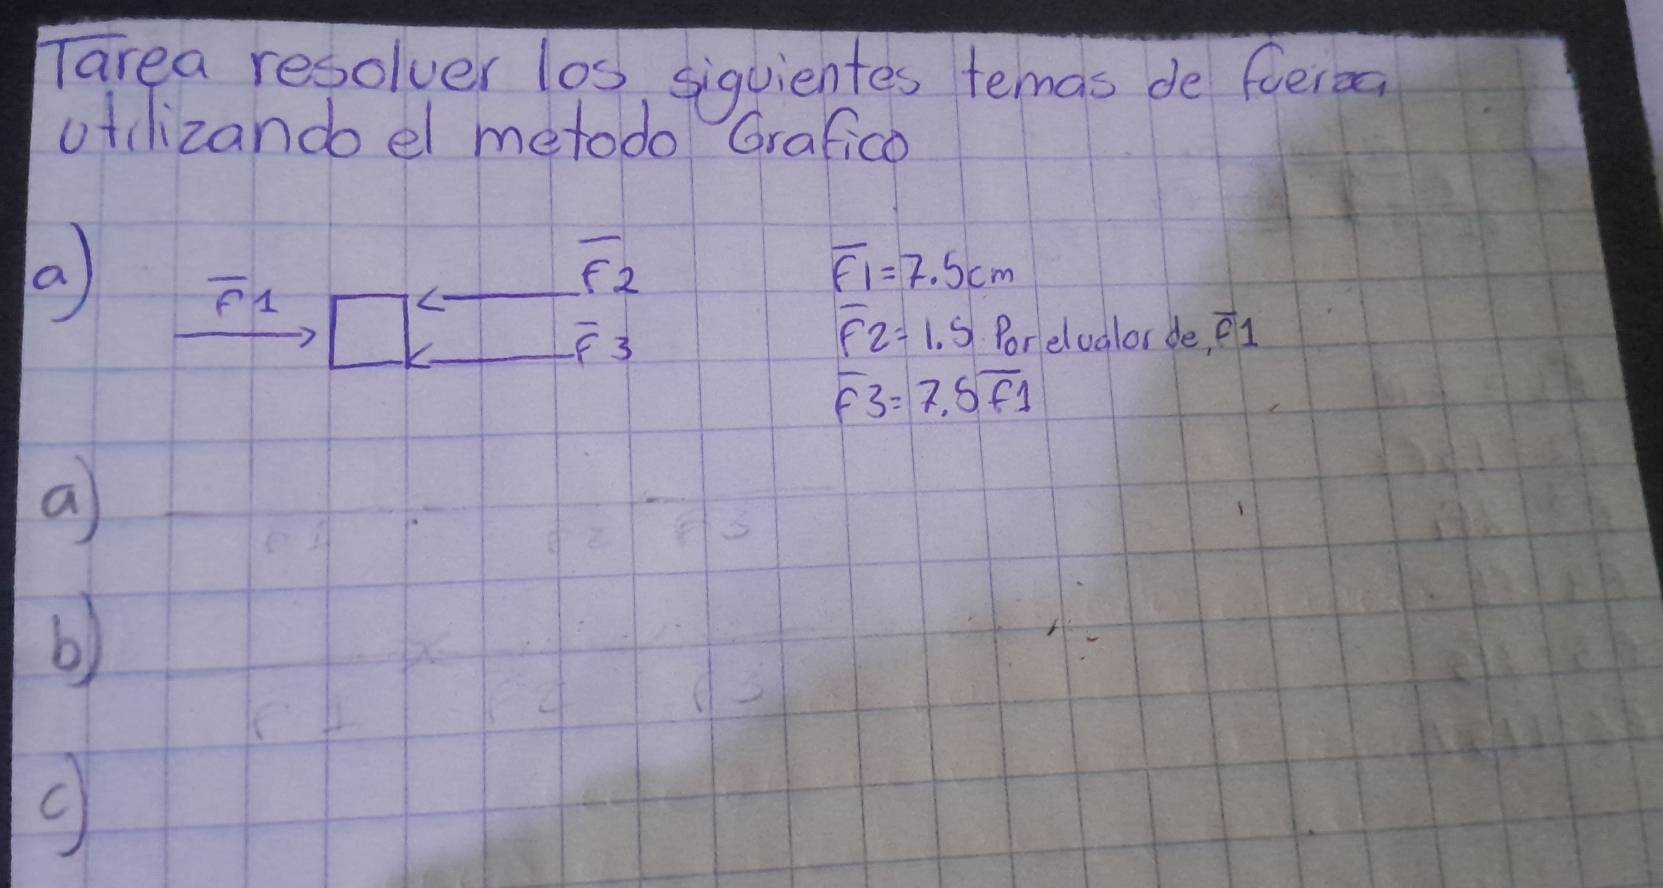 Tarea resolver los siguientes temas de fuerza
utilizando el metodo Grafico
a) F1 F2 F1=7.5cm
F3 F2=1.5 Por elvalor de, F1
F3=7.5 F1
a)
F1 F2 F3
b)
x
F1 F2 F3
c)